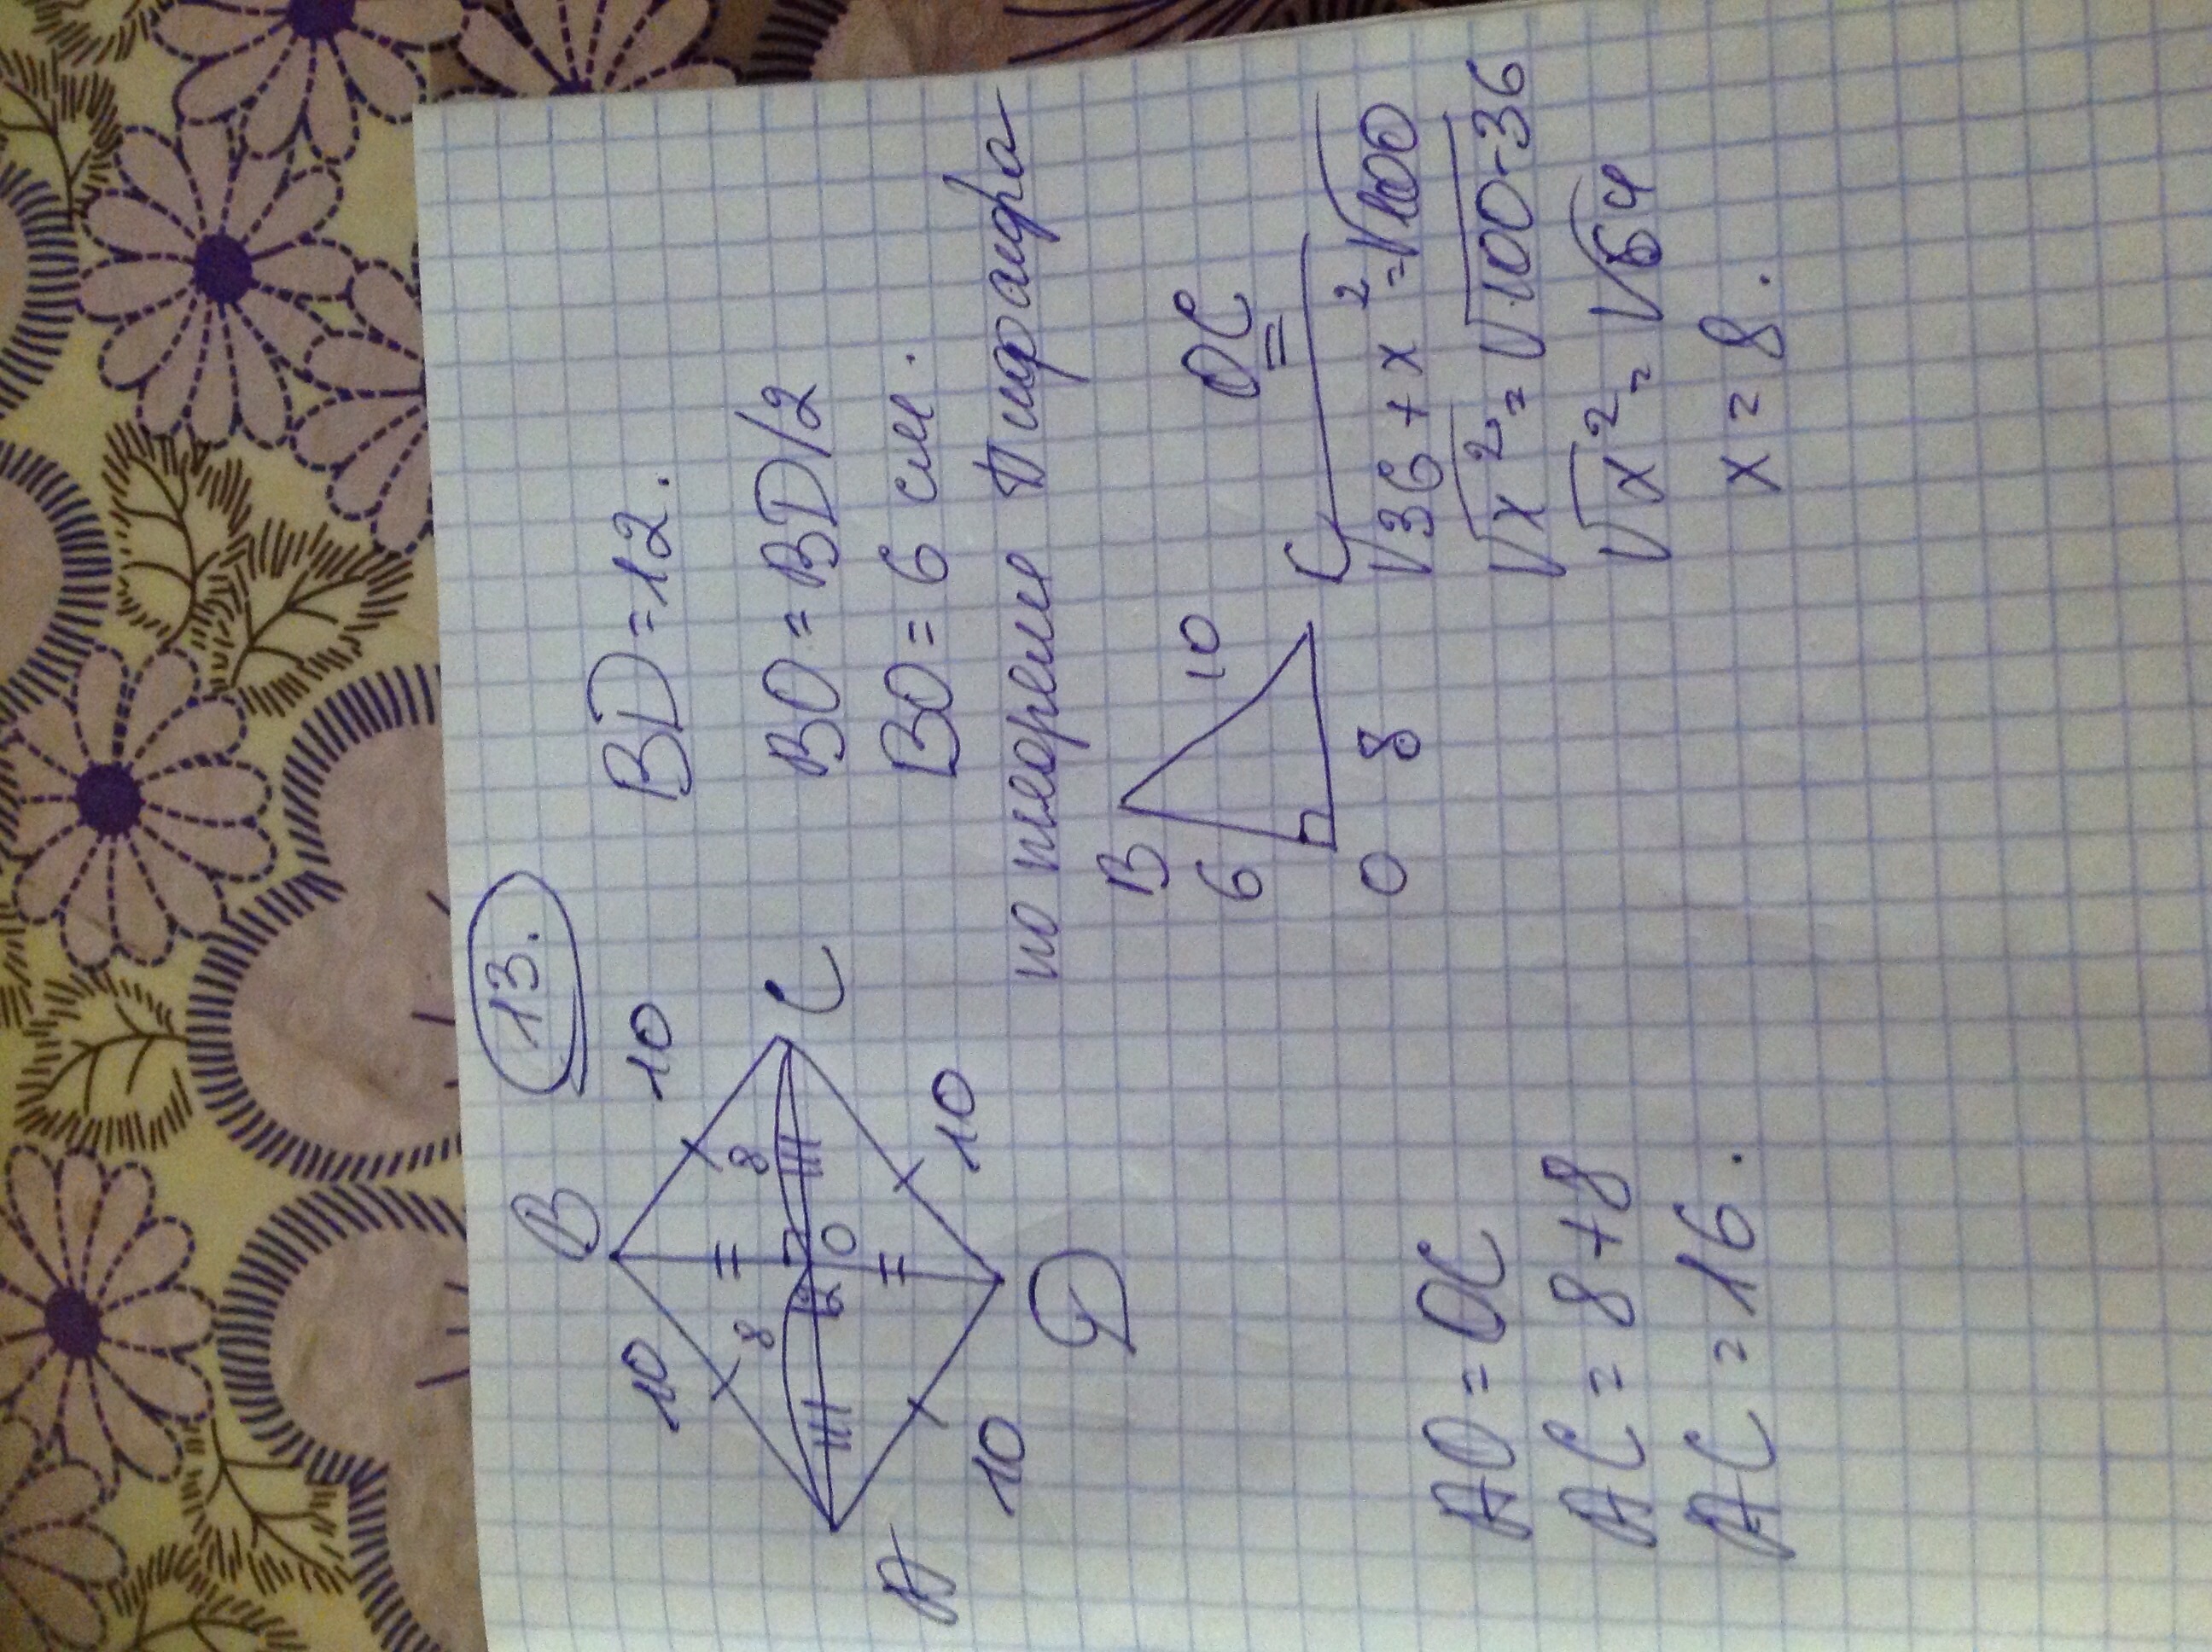 13.
B
10
10
8
8
A
C
O
10
10
D
BD=12.
BO=BD/2
BO=6 см.
по теореме Пифагора
B
6
10
O
8
C
OC
√36+x²=√100
√x²=√100-36
√x²=√64
x=8.
AO=OC
AC=8+8
AC=16.